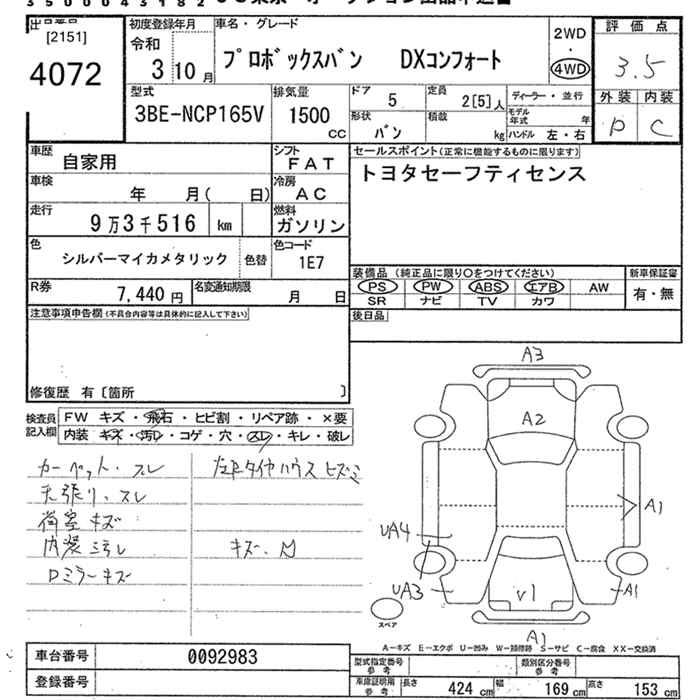 出品番号
[2151]
4072
初度登録年月
令和
3 10 月
車名・グレード
プロボックスバン DXコンフォート
2WD
・
4WD
評価点
3.5
外装 内装
D C
型式
3BE-NCP165V
排気量
1500
cc
ドア
5
定員
2[5]人
ディーラー・並行
形状
バン
積載
kg
モデル
年式 年
ハンドル 左・右
車歴
自家用
シフト
FAT
車検
年 月( 日)
冷房
AC
走行
9万3千516 km
燃料
ガソリン
色
シルバーマイカメタリック
色替
色コード
1E7
R券
7,440 円
名変通知期限
月 日
セールスポイント(正常に機能するものに限ります)
トヨタセーフティセンス
装備品 (純正品に限り○をつけてください)
新車保証書
PS PW ABS エアB AW
SR ナビ TV カワ
有・無
後日品
注意事項申告欄(不具合内容等は具体的に記入して下さい)
修復歴 有〔箇所 〕
検査員
記入欄
FW キズ・飛石・ヒビ割・リペア跡・×要
内装 キズ・汚レ・コゲ・穴・スレ・キレ・破レ
カーペット・スレ
天張り・スレ
荷室キズ
内装ミラレ
Dミラーキズ
左Rタイヤハウスヒズミ
キズ、凹
A3
A2
A1
UA4
UA3
V1
A1
A1
スペア
A－キズ E－エクボ U－凹み W－補修跡 S－サビ C－腐食 XX－交換済
車台番号
0092983
登録番号
型式指定番号
参考
類別区分番号
参考
車庫証明用
参考
長さ 424 cm
幅 169 cm
高さ 153 cm